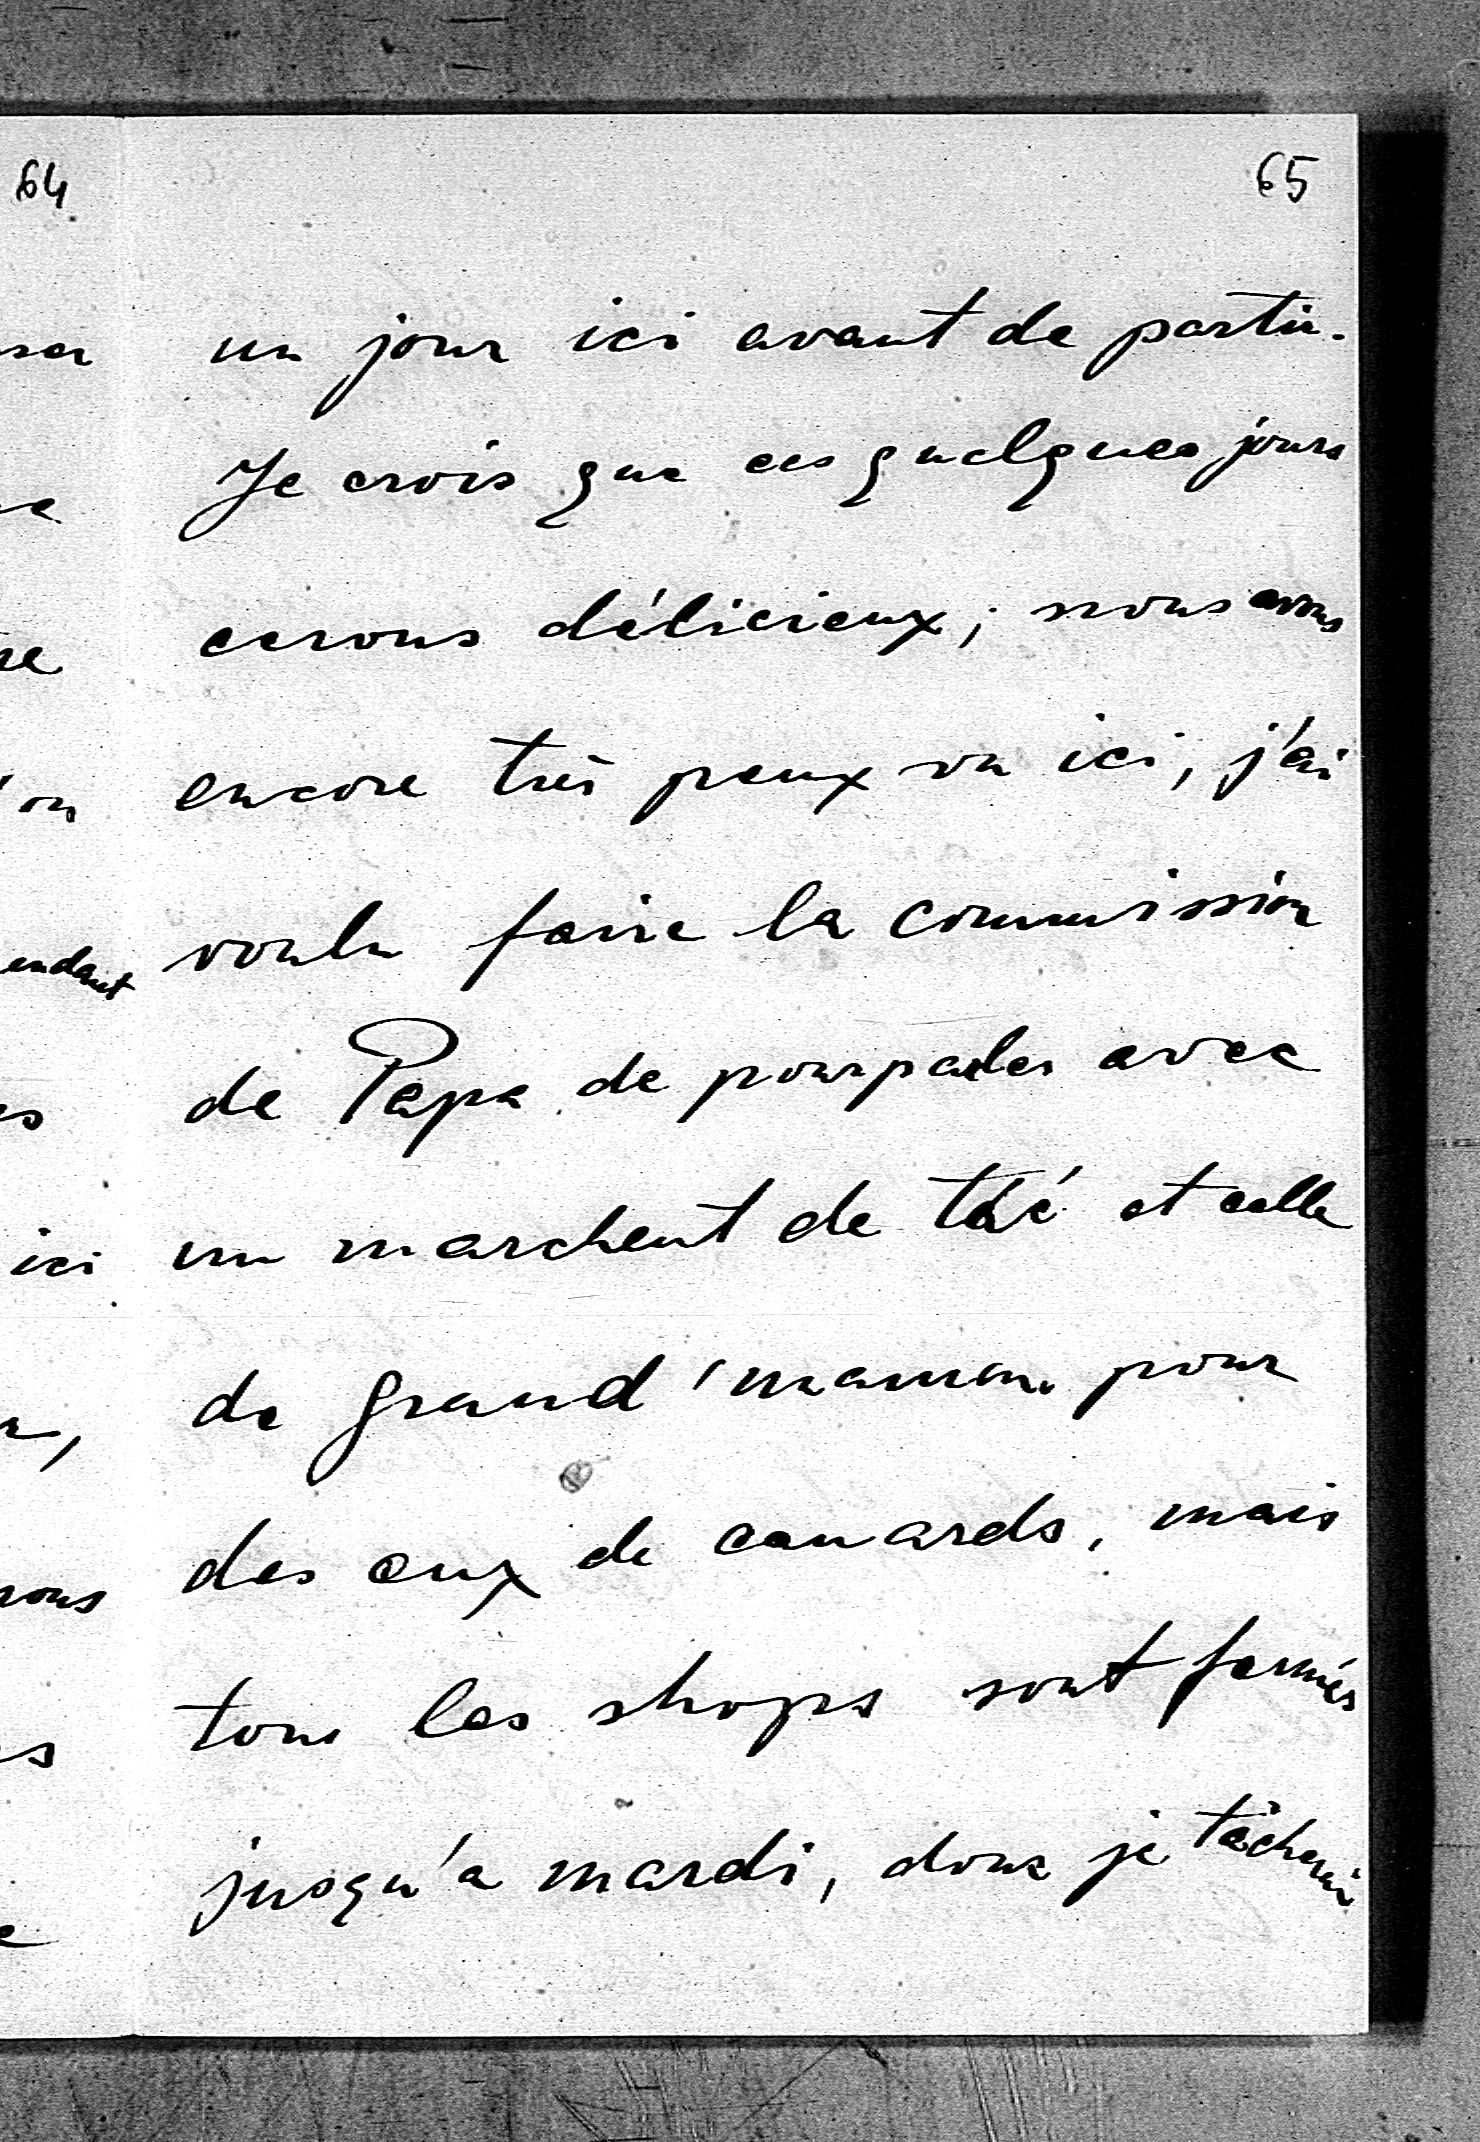 64
65
un jour ici avant de partir.
Je crois que ces quelques jours
cerons délicieux; nous avons
encore très peux vu ici, j'ai
voulu faire la commission
de Papa de pourparler avec
un marchent de thé et celle
de grand'maman pour
des eux de canards, mais
tous les shops sont fermés
jusqu'a mardi, donc je tâcherai
endant
ici